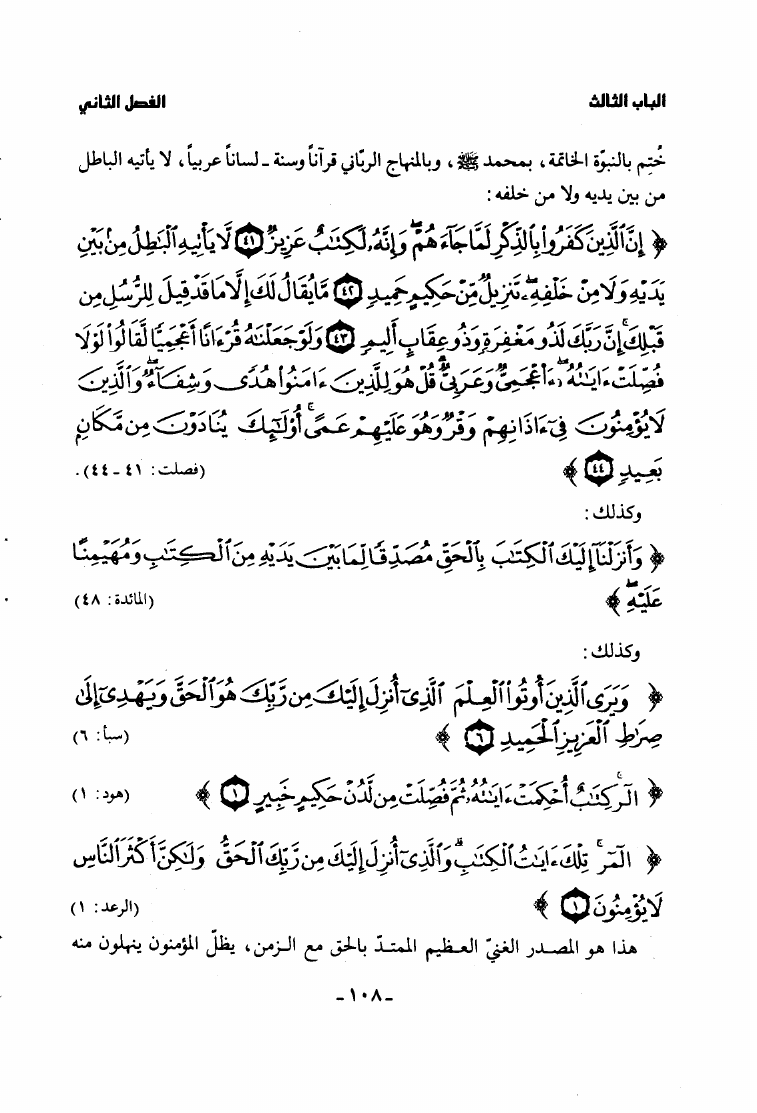 الباب الثالث الفصل الثاني
خُتِم بالنبوّة الخاتمة، بمحمد ﷺ، وبالمنهاج الربّاني قرآناً وسنة ـ لساناً عربياً، لا يأتيه الباطل
من بين يديه ولا من خلفه :
﴿ إِنَّ ٱلَّذِينَ كَفَرُوا۟ بِٱلذِّكْرِ لَمَّا جَآءَهُمْ ۖ وَإِنَّهُۥ لَكِتَٰبٌ عَزِيزٌ ٤١ لَّا يَأْتِيهِ ٱلْبَٰطِلُ مِنۢ بَيْنِ
يَدَيْهِ وَلَا مِنْ خَلْفِهِۦ ۖ تَنزِيلٌ مِّنْ حَكِيمٍ حَمِيدٍ ٤٢ مَّا يُقَالُ لَكَ إِلَّا مَا قَدْ قِيلَ لِلرُّسُلِ مِن
قَبْلِكَ ۚ إِنَّ رَبَّكَ لَذُو مَغْفِرَةٍ وَذُو عِقَابٍ أَلِيمٍ ٤٣ وَلَوْ جَعَلْنَٰهُ قُرْءَانًا أَعْجَمِيًّا لَّقَالُوا۟ لَوْلَا
فُصِّلَتْ ءَايَٰتُهُۥٓ ۖ ءَا۬عْجَمِىٌّ وَعَرَبِىٌّ ۗ قُلْ هُوَ لِلَّذِينَ ءَامَنُوا۟ هُدًى وَشِفَآءٌ ۖ وَٱلَّذِينَ
لَا يُؤْمِنُونَ فِىٓ ءَاذَانِهِمْ وَقْرٌ وَهُوَ عَلَيْهِمْ عَمًى ۚ أُو۟لَٰٓئِكَ يُنَادَوْنَ مِن مَّكَانٍۭ
بَعِيدٍ ٤٤ ﴾ (فصلت: ٤١ ـ ٤٤).
وكذلك :
﴿ وَأَنزَلْنَآ إِلَيْكَ ٱلْكِتَٰبَ بِٱلْحَقِّ مُصَدِّقًا لِّمَا بَيْنَ يَدَيْهِ مِنَ ٱلْكِتَٰبِ وَمُهَيْمِنًا
عَلَيْهِ ۖ ﴾ (المائدة: ٤٨)
وكذلك :
﴿ وَيَرَى ٱلَّذِينَ أُوتُوا۟ ٱلْعِلْمَ ٱلَّذِىٓ أُنزِلَ إِلَيْكَ مِن رَّبِّكَ هُوَ ٱلْحَقَّ وَيَهْدِىٓ إِلَىٰ
صِرَٰطِ ٱلْعَزِيزِ ٱلْحَمِيدِ ٦ ﴾ (سبأ: ٦)
﴿ الٓر ۚ كِتَٰبٌ أُحْكِمَتْ ءَايَٰتُهُۥ ثُمَّ فُصِّلَتْ مِن لَّدُنْ حَكِيمٍ خَبِيرٍ ١ ﴾ (هود: ١)
﴿ الٓمٓر ۚ تِلْكَ ءَايَٰتُ ٱلْكِتَٰبِ ۗ وَٱلَّذِىٓ أُنزِلَ إِلَيْكَ مِن رَّبِّكَ ٱلْحَقُّ وَلَٰكِنَّ أَكْثَرَ ٱلنَّاسِ
لَا يُؤْمِنُونَ ١ ﴾ (الرعد: ١)
هذا هو المصدر الغنيّ العظيم الممتدّ بالحق مع الزمن، يظلّ المؤمنون ينهلون منه
ـ ١٠٨ ـ